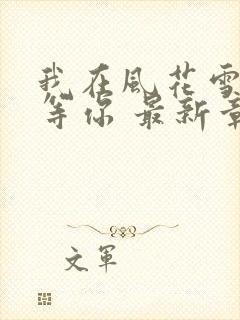 我在風花雪
等你 最新章
文軍